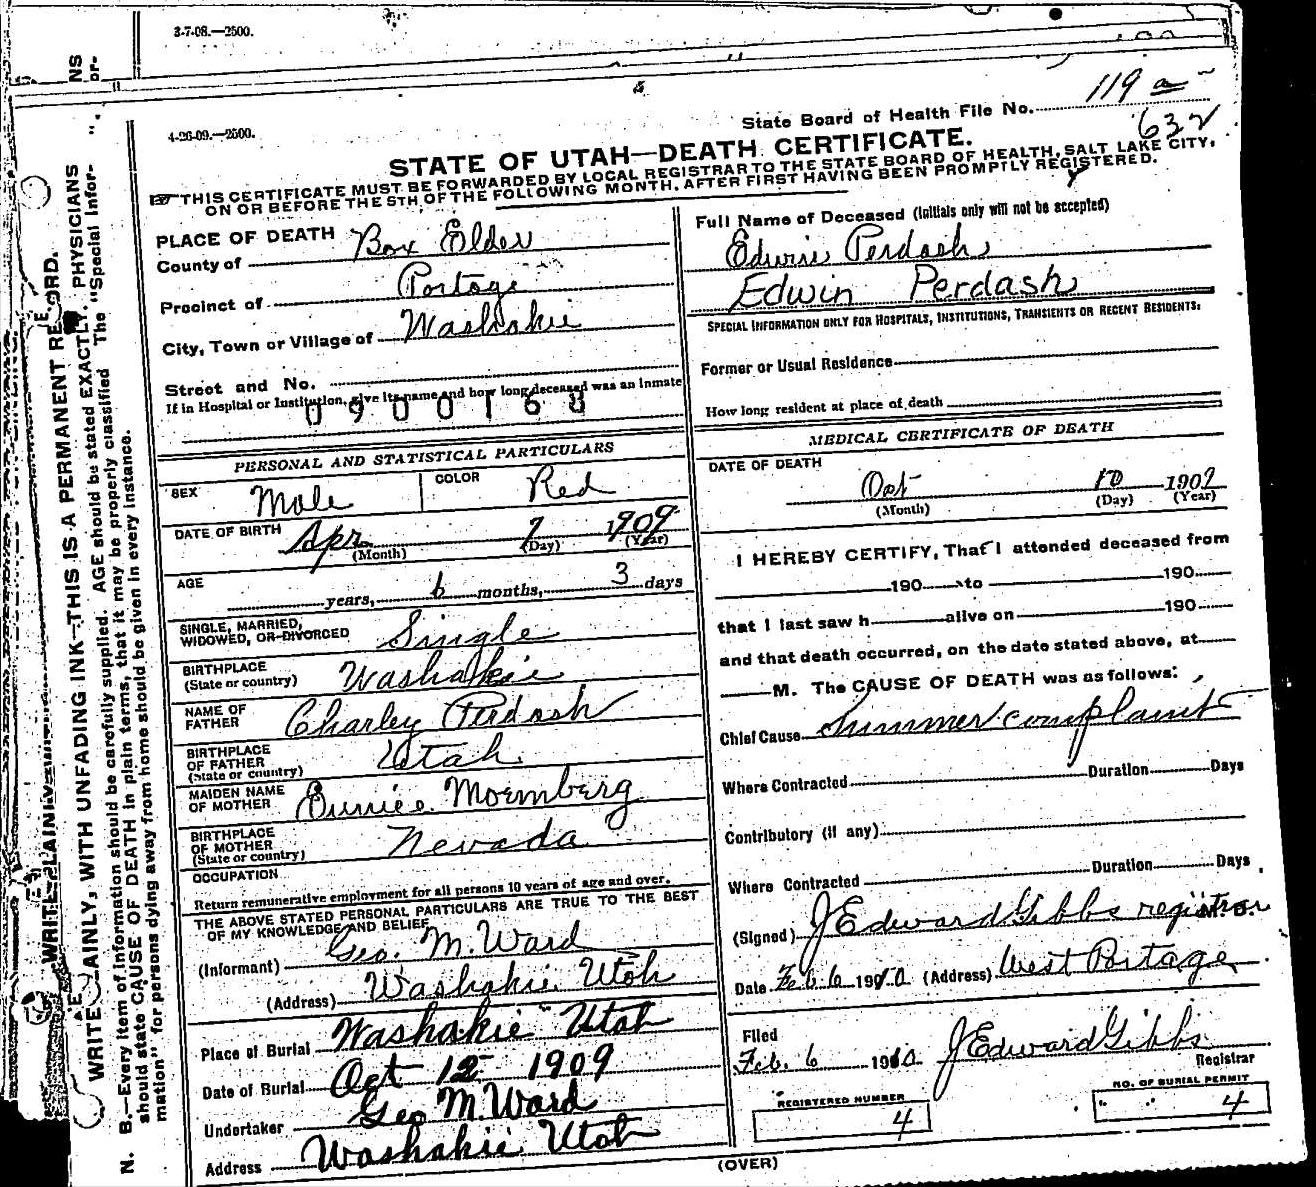 3-7-08.—2500.
4-26-09.—2500.
State Board of Health File No. 119 a
632
STATE OF UTAH—DEATH CERTIFICATE.
THIS CERTIFICATE MUST BE FORWARDED BY LOCAL REGISTRAR TO THE STATE BOARD OF HEALTH, SALT LAKE CITY,
ON OR BEFORE THE 5TH OF THE FOLLOWING MONTH, AFTER FIRST HAVING BEEN PROMPTLY REGISTERED.
PLACE OF DEATH
County of Box Elder
Precinct of Portage
City, Town or Village of Washakie
Street and No.
If in Hospital or Institution, give its name and how long deceased was an Inmate
0900168
PERSONAL AND STATISTICAL PARTICULARS
SEX Male COLOR Red
DATE OF BIRTH Apr 7 1909
(Month) (Day) (Year)
AGE
years, 6 months, 3 days
SINGLE, MARRIED,
WIDOWED, OR DIVORCED Single
BIRTHPLACE
(State or country) Washakie
NAME OF
FATHER Charley Perdash
BIRTHPLACE
OF FATHER
(State or country) Utah
MAIDEN NAME
OF MOTHER Eunice Moemberg
BIRTHPLACE
OF MOTHER
(State or country) Nevada
OCCUPATION
Return remunerative employment for all persons 10 years of age and over.
THE ABOVE STATED PERSONAL PARTICULARS ARE TRUE TO THE BEST
OF MY KNOWLEDGE AND BELIEF
(Informant) Geo. M. Ward
(Address) Washakie Utah
Place of Burial Washakie Utah
Date of Burial Oct 12 1909
Undertaker Geo M. Ward
Address Washakie Utah
Full Name of Deceased (Initials only will not be accepted)
Edwin Perdash
Edwin Perdash
SPECIAL INFORMATION ONLY FOR HOSPITALS, INSTITUTIONS, TRANSIENTS OR RECENT RESIDENTS:
Former or Usual Residence
How long resident at place of death
MEDICAL CERTIFICATE OF DEATH
DATE OF DEATH
Oct 10 1909
(Month) (Day) (Year)
I HEREBY CERTIFY, That I attended deceased from
190 to 190
that I last saw h alive on 190
and that death occurred, on the date stated above, at
M. The CAUSE OF DEATH was as follows:
Chief Cause Summer complaint
Where Contracted Duration Days
Contributory (if any)
Where Contracted Duration Days
(Signed) J Edward Gibbs registrar M. D.
Date Feb. 6 1910 (Address) West Portage
Filed
Feb. 6 1910 J Edward Gibbs
Registrar
REGISTERED NUMBER
4
NO. OF BURIAL PERMIT
4
(OVER)
WRITE PLAINLY, WITH UNFADING INK—THIS IS A PERMANENT RECORD.
N. B.—Every item of information should be carefully supplied. AGE should be stated EXACTLY. PHYSICIANS
should state CAUSE OF DEATH in plain terms, that it may be properly classified. The "Special Infor-
mation" for persons dying away from home should be given in every instance.